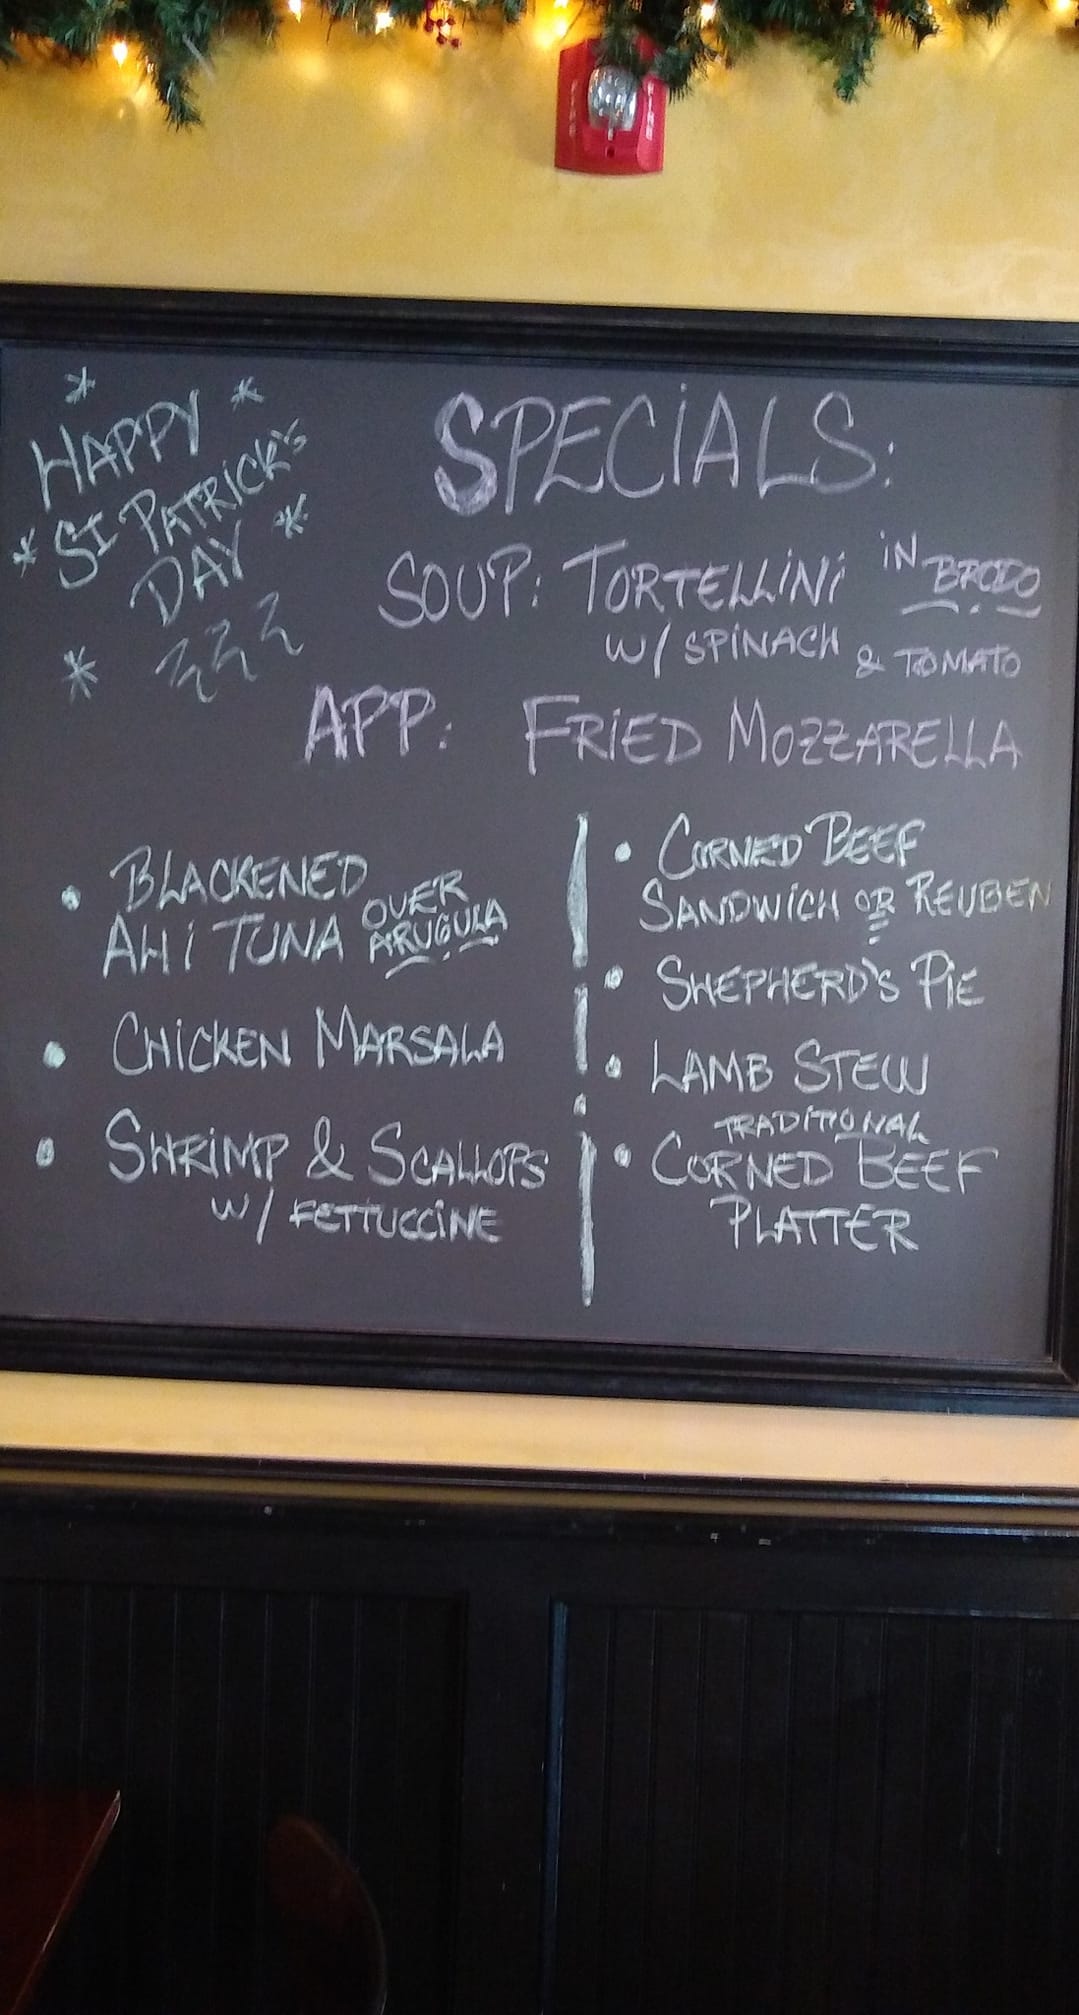 HAPPY
ST PATRICK'S
DAY
SPECIALS:
SOUP: TORTELLINI IN BRODO
W/ SPINACH & TOMATO
APP: FRIED MOZZARELLA
• BLACKENED
AHI TUNA OVER
ARUGULA
• CHICKEN MARSALA
• SHRIMP & SCALLOPS
W/ FETTUCCINE
• CORNED BEEF
SANDWICH OR REUBEN
• SHEPHERD'S PIE
• LAMB STEW
TRADITIONAL
• CORNED BEEF
PLATTER